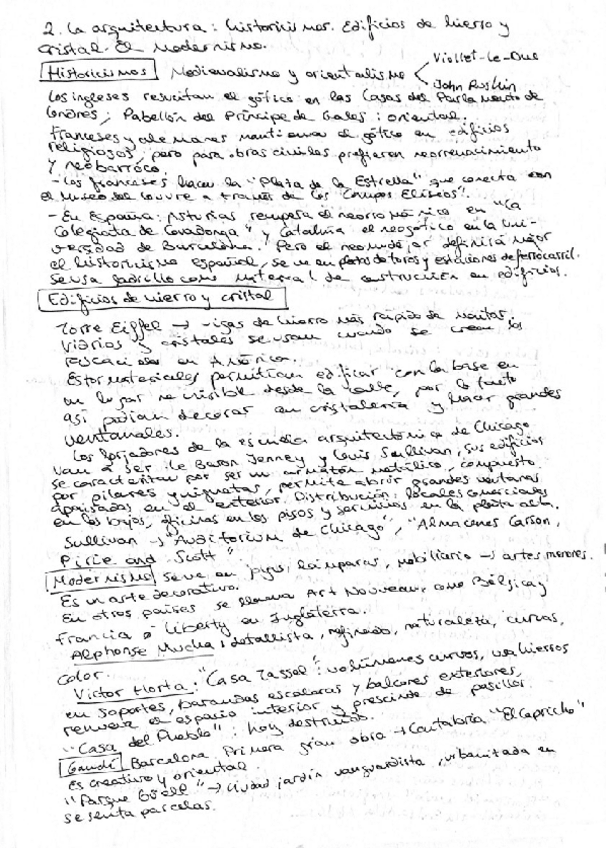 2. La arquitectura: historicismos. Edificios de hierro y
cristal. El modernismo.
Historicismos Medievalismo y orientalismo Viollet-le-Duc
John Ruskin
Los ingleses resucitan el gótico en las Casas del Parlamento de
Londres; Pabellón del Príncipe de Gales: oriental.
Franceses y alemanes mantienen el gótico en edificios
religiosos, pero para obras civiles prefieren neorrenacimiento
y neobarroco.
- Los franceses hacen la "Plaza de la Estrella" que conecta con
el Museo del Louvre a través de los "Campos Elíseos".
- En España: Asturias recupera el neorrománico en "La
Colegiata de Covadonga" y Cataluña el neogótico en la Uni-
versidad de Barcelona. Pero el neomudéjar definirá mejor
el historicismo español, se ve en plazas de toros y estaciones de ferrocarril.
Se usa ladrillo como material de construcción en edificios.
Edificios de hierro y cristal
Torre Eiffel → vigas de hierro más rápido de montar.
Vidrios y cristales se usan cuando se crean los
rascacielos en América.
Estos materiales permitían edificar con la base en
un lugar no visible desde la calle, por lo tanto
así podían decorar con cristalería y hacer grandes
ventanales.
Los forjadores de la escuela arquitectónica de Chicago
van a ser Le Baron Jenney y Louis Sullivan, sus edificios
se caracterizan por ser un armazón metálico, compuesto
por pilares y viguetas, permite abrir grandes ventanas
apaisadas en el exterior. Distribución: locales comerciales
en los bajos, oficinas en los pisos y servicios en la planta alta.
Sullivan → "Auditorium de Chicago", "Almacenes Carson,
Pirie and Scott"
Modernismo Se ve en joyas, lámparas, mobiliario → artes menores.
Es un arte decorativo.
En otros países se llama Art Nouveau, como Bélgica y
Francia o Liberty en Inglaterra.
Alphonse Mucha: detallista, refinado, naturaleza, curvas,
color.
Victor Horta: "Casa Tassel": volúmenes curvos, usa hierros
en soportes, barandas escaleras y balcones exteriores,
renueva el espacio interior y prescinde de pasillos.
"Casa del Pueblo": hoy destruida.
Gaudí Barcelona. Primera gran obra → Cantabria "El Capricho"
Es creativo y oriental.
"Parque Güell" → Ciudad jardín vanguardista, urbanizada en
sesenta parcelas.